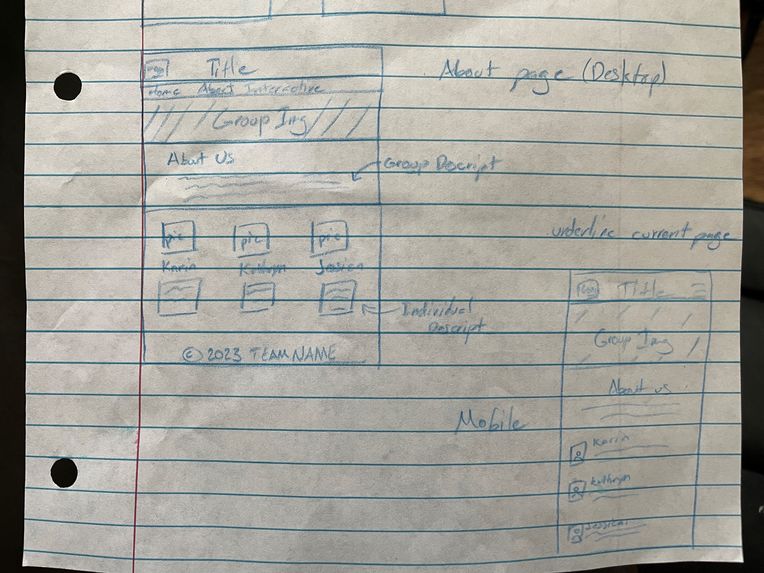 Title
About page (Desktop)
Home About Interactive
Group Img
About Us
Group Descript
pic pic pic
underline current page
Karin Kathryn Jessica
Individual
Descript
© 2023 TEAM NAME
Title
Group Img
About us
Mobile
Karin
Kathryn
Jessica